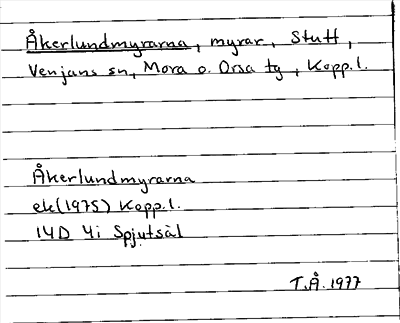 Åkerlundmyrarna, myrar, Stutt,
Venjans sn, Mora o. Orsa tg, Kopp.l.
Åkerlundmyrarna
ek(1975) Kopp.l.
14D 4i Spjutsäl
T.Å. 1977